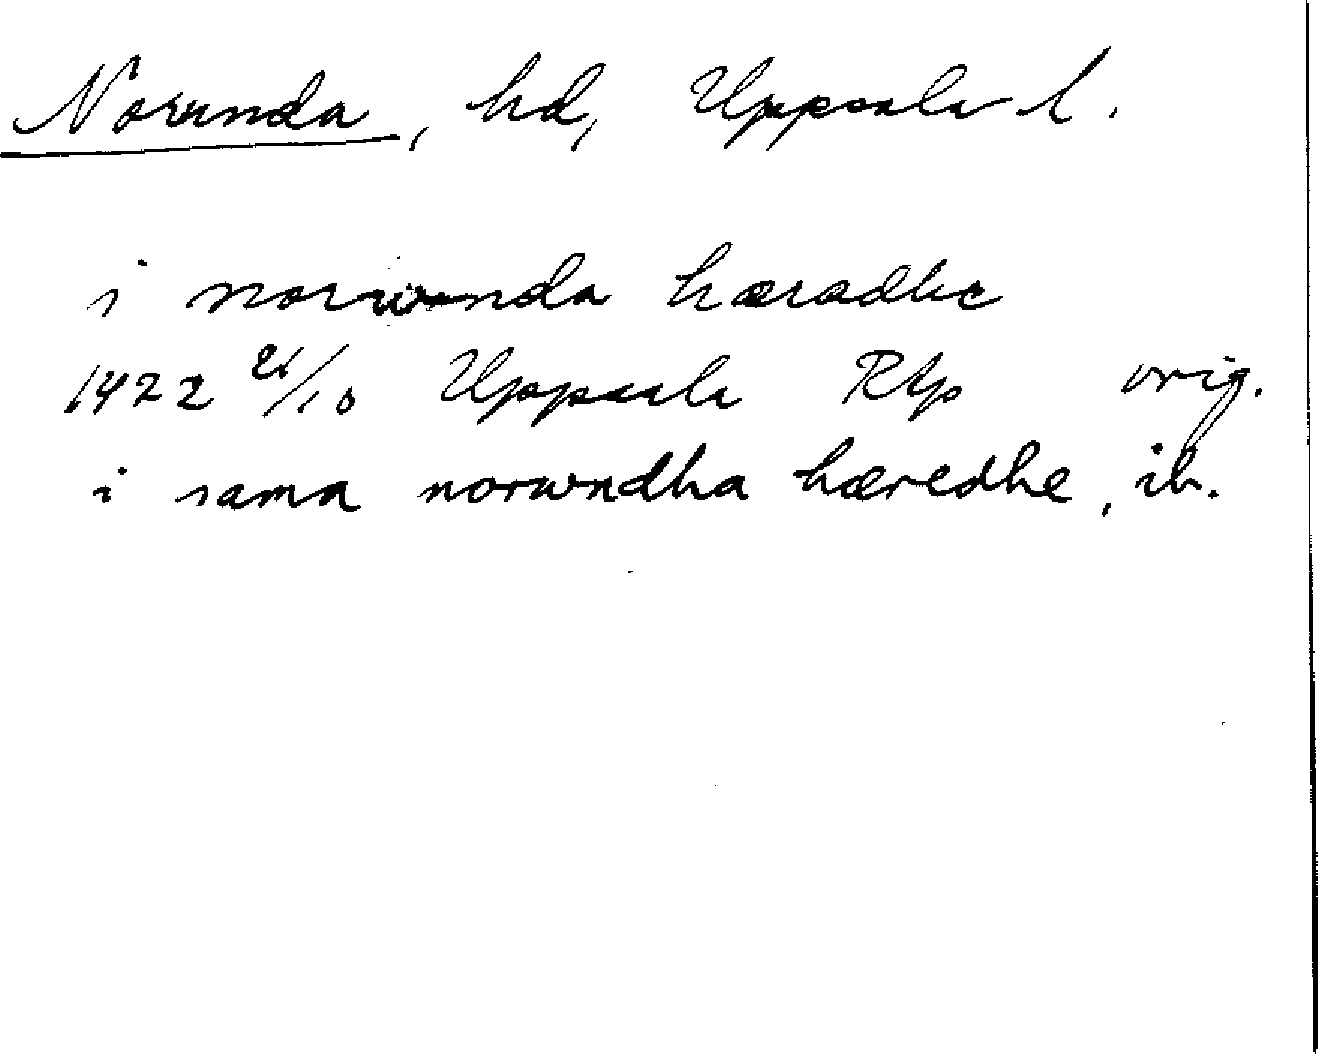 Norunda, hd, Uppsala l.
i norwnda hæradhe
1422 21/10 Uppsala RAp orig.
i sama norwndha hæredhe, ib.